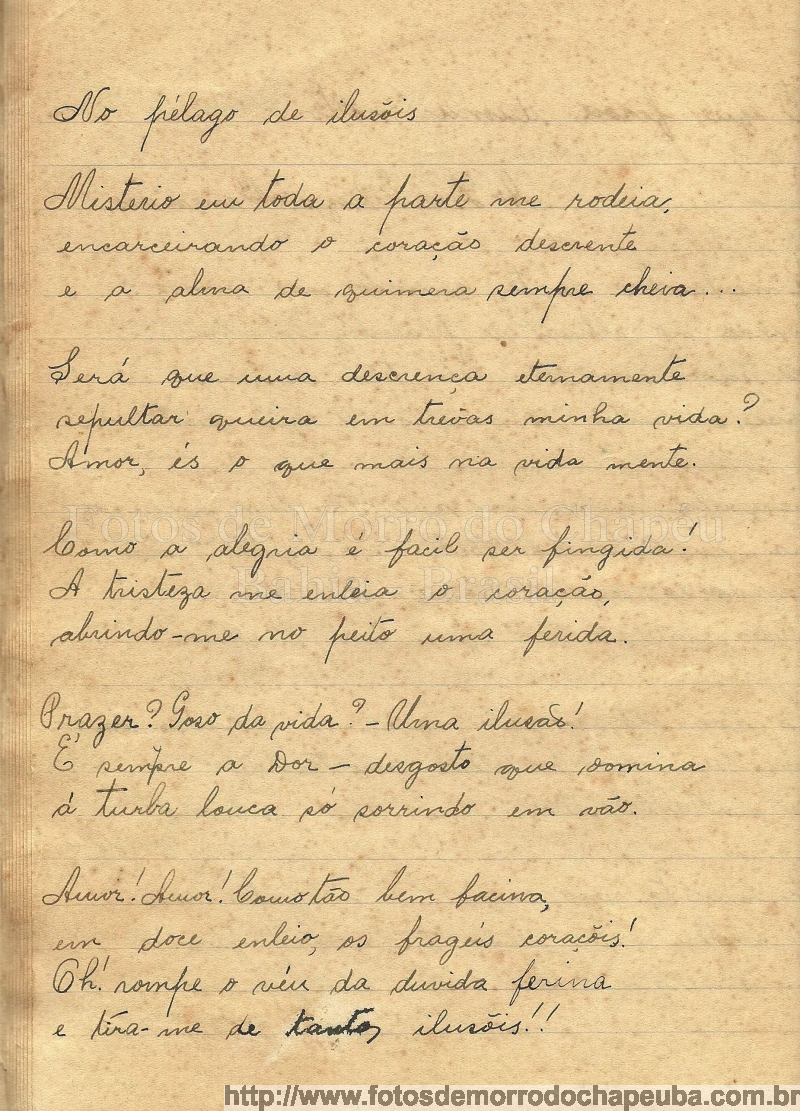 No pélago de ilusõis
Misterio em toda a parte me rodeia,
encarceirando o coração descrente
e a alma de quimera sempre cheia...
Será que uma descrença eternamente
sepultar queira em trevas minha vida?
Amor, és o que mais na vida mente.
Fotos de Morro do Chapéu
Bahia - Brasil
Como a alegria é facil ser fingida!
A tristeza me enleia o coração,
abrindo-me no peito uma ferida.
Prazer? Goso da vida? - Uma ilusão!
É sempre a Dor - desgosto que domina
á turba louca só sorrindo em vão.
Amor! Amor! Como tão bem facina,
em doce enleio, os frageis coraçõis!
Oh! rompe o véu da duvida ferina
e tira-me de tantas ilusõis!!
http://www.fotosdemorrodochapeuba.com.br